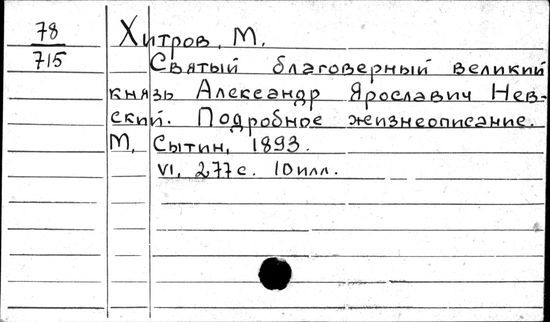 78
715
Хитров, М.
Святый благоверный великий
князь Александр Ярославич Нев-
ский. Подробное жизнеописание.
М, Сытин, 1893.
VI, 277с. 10илл.